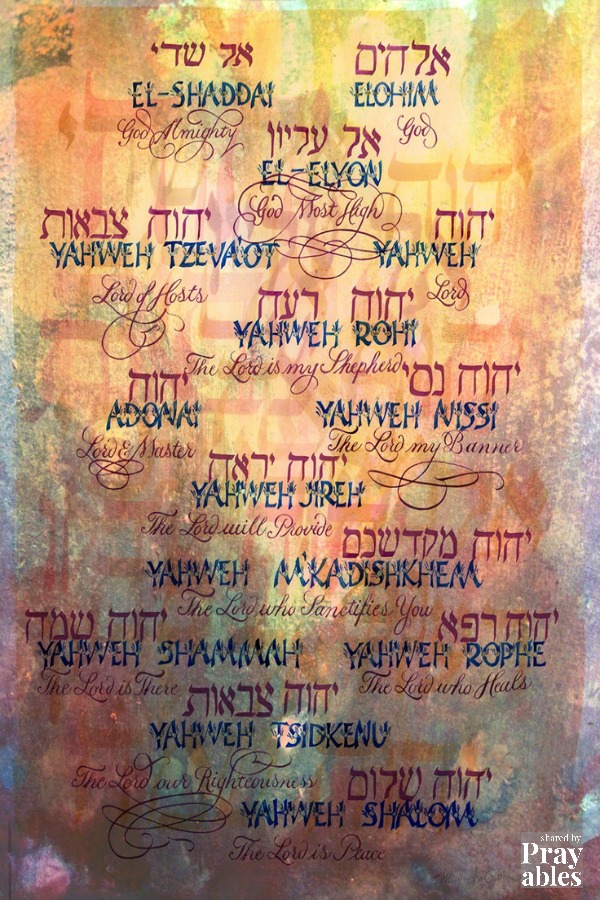 אל שדי
אלהים
EL-SHADDAI
ELOHIM
God Almighty
God
אל עליון
EL-ELYON
God Most High
יהוה צבאות
יהוה
YAHWEH TZEVA'OT
YAHWEH
Lord of Hosts
Lord
יהוה רעה
YAHWEH ROHI
The Lord is my Shepherd
יהוה
יהוה נסי
ADONAI
YAHWEH NISSI
Lord & Master
The Lord my Banner
יהוה יראה
YAHWEH JIREH
The Lord will Provide
יהוה מקדשכם
YAHWEH M'KADISHKHEM
The Lord who Sanctifies You
יהוה שמה
יהוה רפא
YAHWEH SHAMMAH
YAHWEH ROPHE
The Lord is There
The Lord who Heals
יהוה צבאות
YAHWEH TSIDKENU
The Lord our Righteousness
יהוה שלום
YAHWEH SHALOM
The Lord is Peace
shared by
Pray
ables